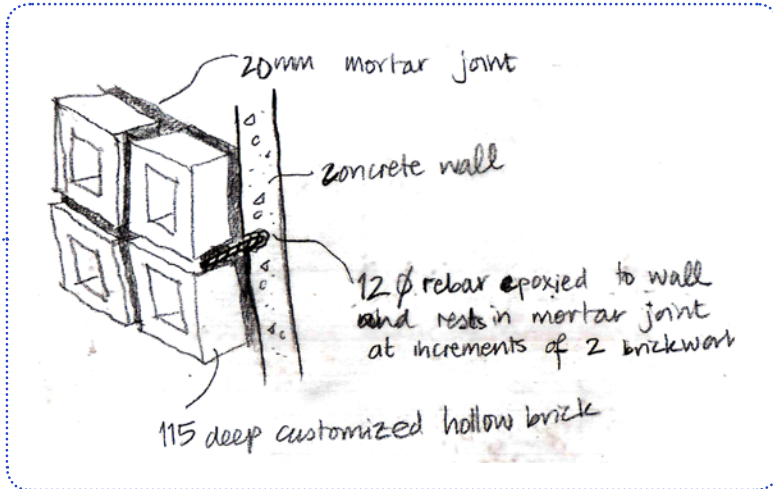 20mm mortar joint
concrete wall
12 Ø rebar epoxied to wall
and rests in mortar joint
at increments of 2 brickwork
115 deep customized hollow brick